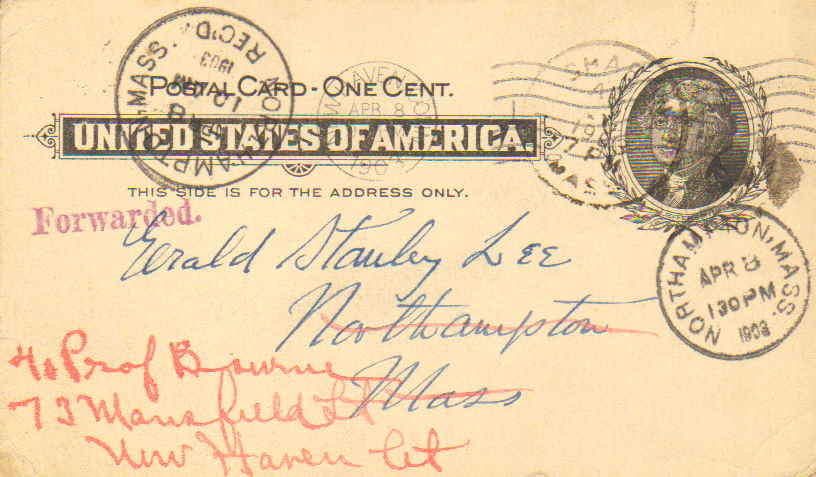 POSTAL CARD - ONE CENT.
UNITED STATES OF AMERICA.
THIS SIDE IS FOR THE ADDRESS ONLY.
Forwarded.
Gerald Stanley Lee
Northampton
Mass
Prof Bourne
73 Mansfield St
New Haven Ct
NORTHAMPTON, MASS.
REC'D
1903
APR 8
MASS
NORTHAMPTON, MASS.
APR 8
130 PM
1903